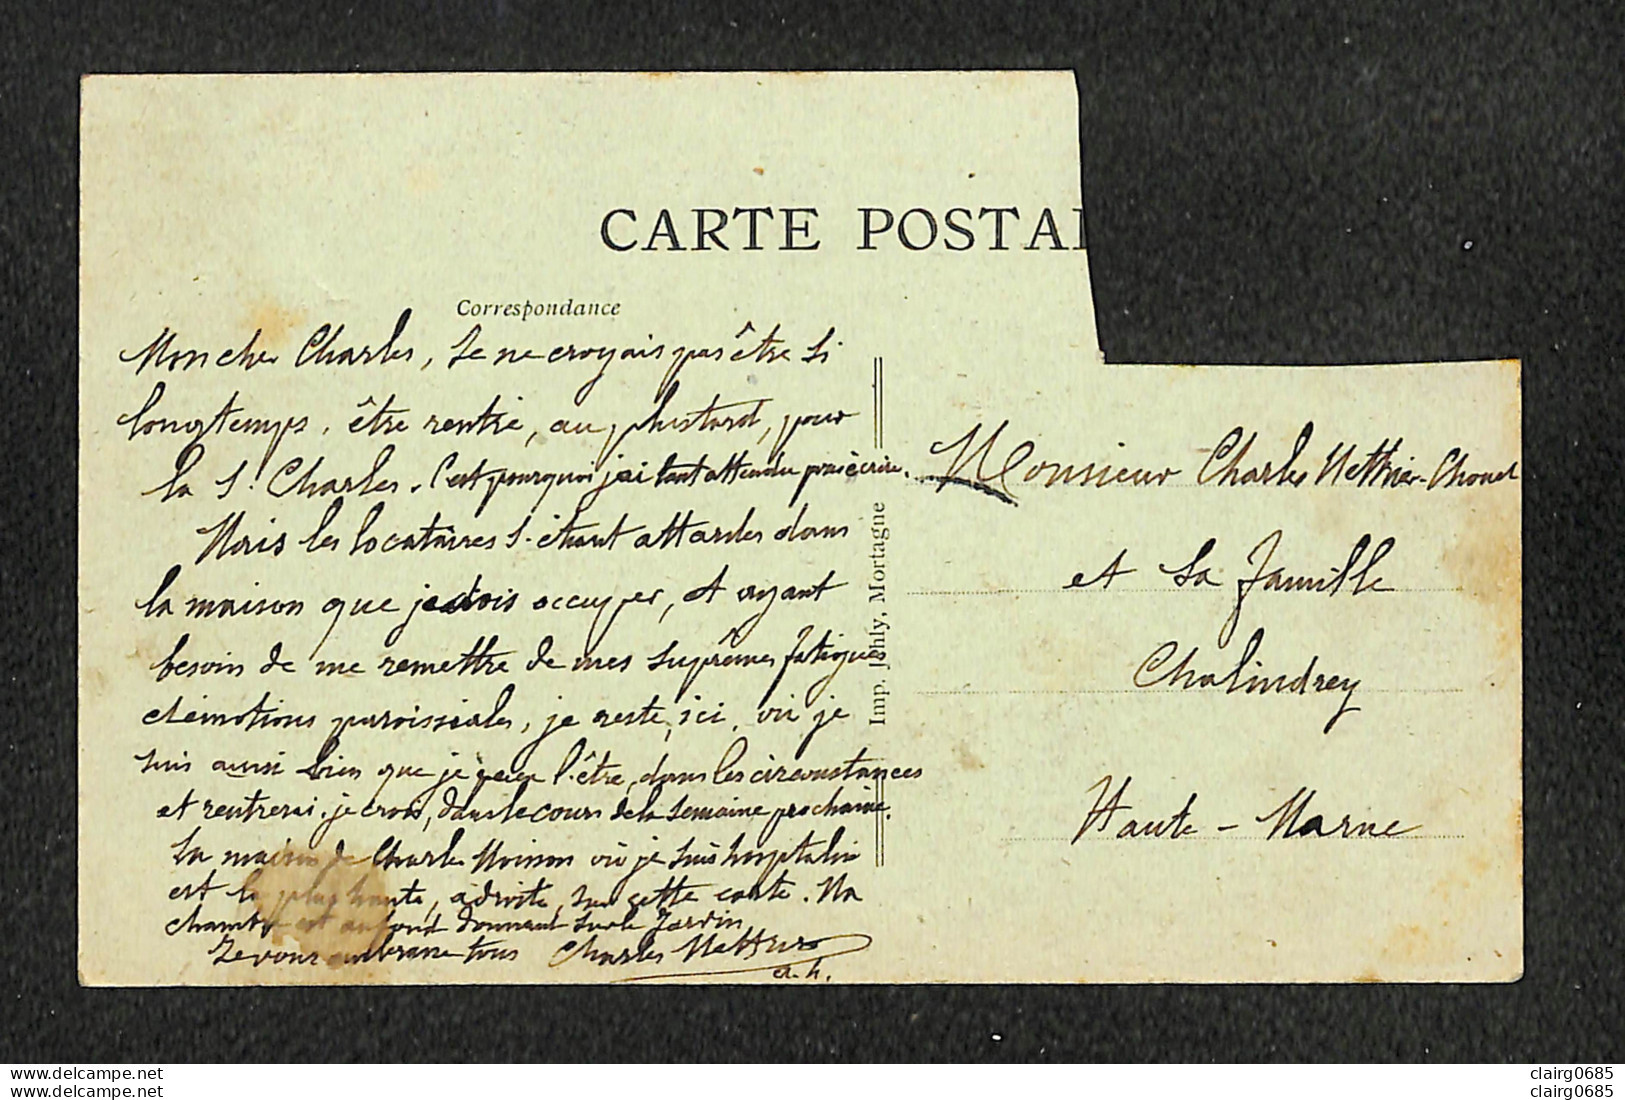 CARTE POSTAL
Correspondance
Mon cher Charles, Je ne croyais pas être si
longtemps, être rentré, au plus tard, pour
la St Charles. C'est pourquoi j'ai tant attendu pour écrire.
Mais les locataires s'étant attardés dans
la maison que je dois occuper, et ayant
besoin de me remettre de mes suprêmes fatigues
et émotions paroissiales, je reste, ici, où je
suis aussi bien que je peux l'être, dans les circonstances
et rentrerai, je crois, dans le cours de la semaine prochaine.
La maison de Charles Moinon où je suis hospitalisé
est la plus haute, à droite, sur cette carte. Ma
chambre est au fond donnant sur le Jardin
Je vous embrasse tous Charles Mettrier
a. h.
Imp. Jehly, Mortagne
Monsieur Charles Mettrier-Chouet
et sa famille
Chalindrey
Haute-Marne
delcampe.net
delcampe.net
clairg0685
clairg0685